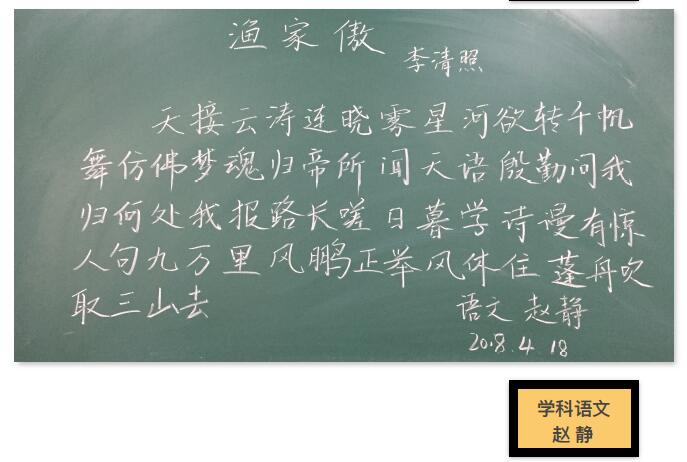 渔家傲
李清照
天接云涛连晓雾星河欲转千帆
舞仿佛梦魂归帝所闻天语殷勤问我
归何处我报路长嗟日暮学诗谩有惊
人句九万里风鹏正举风休住蓬舟吹
取三山去
语文 赵静
2018.4 18
学科语文
赵 静